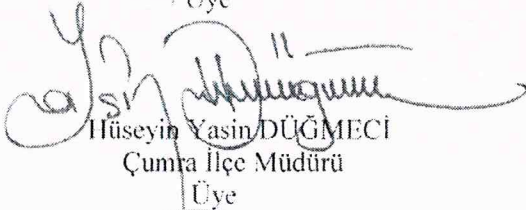 Üye
Hüseyin Yasin DÜĞMECİ
Çumra İlçe Müdürü
Üye